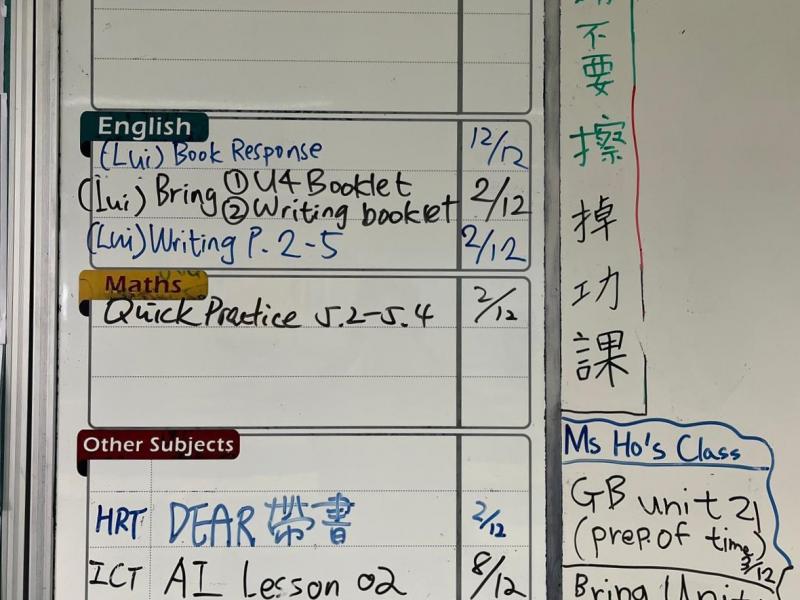 English
(Lui) Book Response 12/12
(Lui) Bring ① U4 Booklet 2/12
② Writing booklet
(Lui) Writing P. 2-5 2/12
Maths
Quick Practice 5.2-5.4 2/12
Other Subjects
HRT DEAR 帶書 2/12
ICT AI Lesson 02 8/12
不要擦掉功課
Ms Ho's Class
GB unit 21
(prep. of time) 3/12
Bring